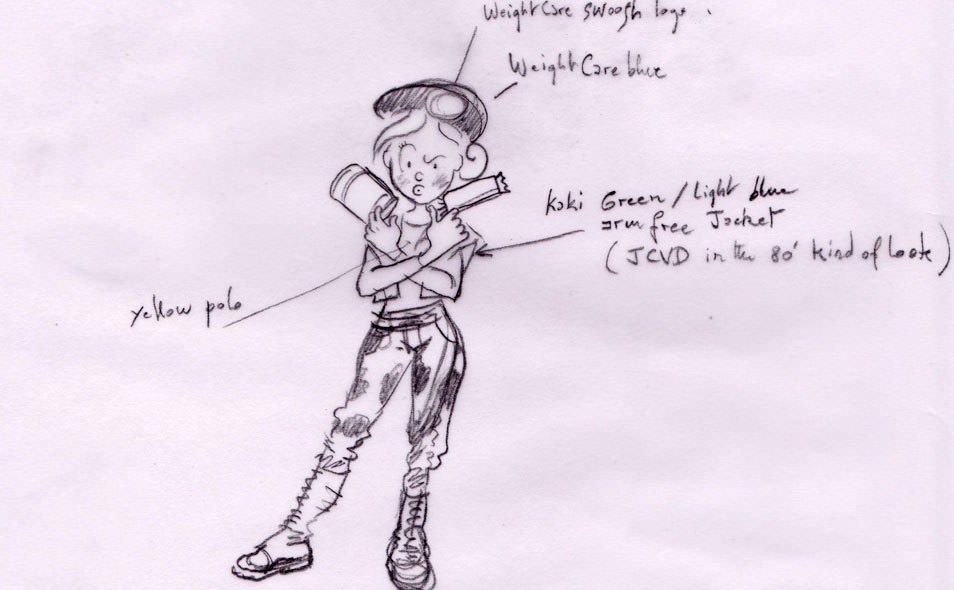 WeightCare swoosh logo.
WeightCare blue
Kaki Green / Light blue
arm free Jacket
(JCVD in the 80' kind of look)
yellow polo